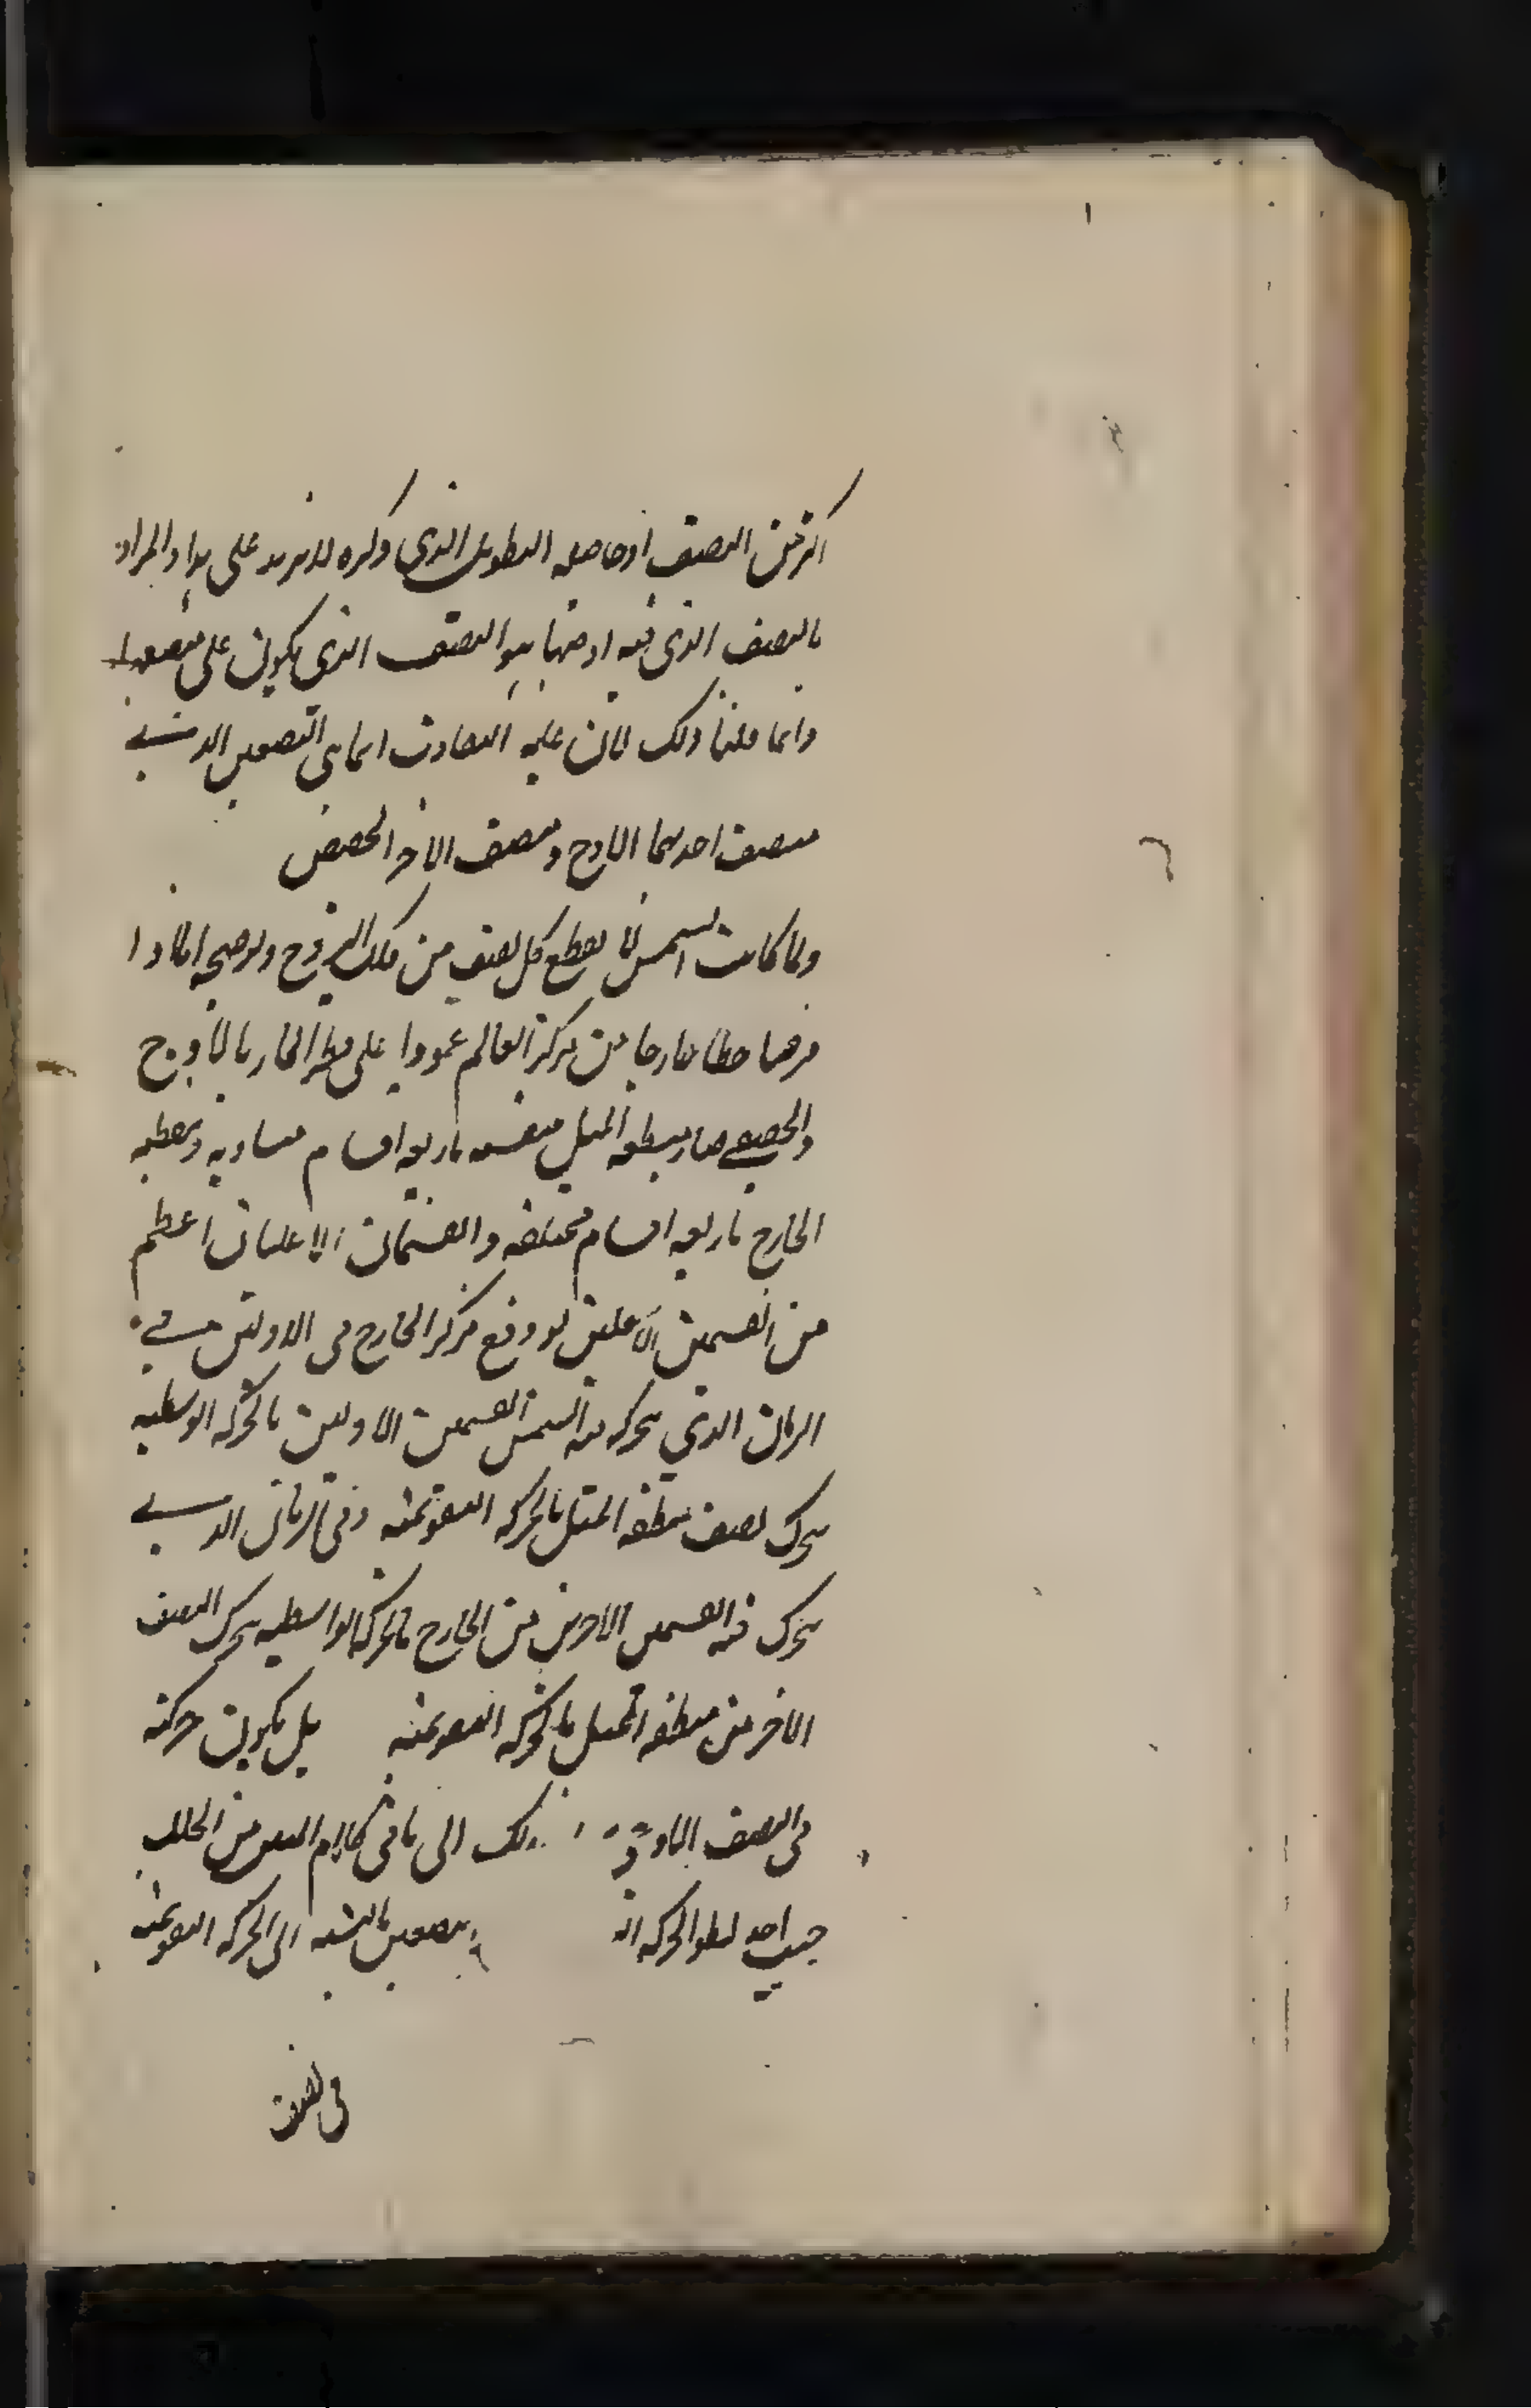 اكثر من النصف اذ حاصله التطويل الذي ذكره لا يزيد على هذا والمراد
بالنصف الذي فيه اوجها هو النصف الذي يكون على منتصفه
وانما قلنا ذلك لان غاية التفاوت انما هي النصفين الذي
منتصف احدهما الاوج ومنتصف الاخر الحضيض
ولما كانت الشمس لا يقطع كل نصف من فلك البروج وتوضيحه انا اذا
فرضنا خطا خارجا من مركز العالم عمودا على قطر المار بالاوج
والحضيض صار منطقه الممثل منقسمه باربعه اقسام متساويه ومنطقه
الخارج باربعه اقسام مختلفه والقسمان الاعليان اعظم
من القسمين لوقوع مركز الخارج فى الاولين في
الزمان الذي يتحرك فيه الشمس القسمين الاولين بالحركه الوسطيه
يتحرك نصف منطقه الممثل بالحركه التقويميه وفي الزمان الذي
يتحرك فيه القسمين الاخرين من الخارج بالحركه الواسطيه يتحرك النصف
الاخر من منطقه الممثل بالحركه التقويميه بل يكون حركته
فى النصف الاوجي الى ما فى كلام المص من الخلل
حيث احد بطو الحركه النصفين بالنسبه الى الحركه التقويميه
فى نصف